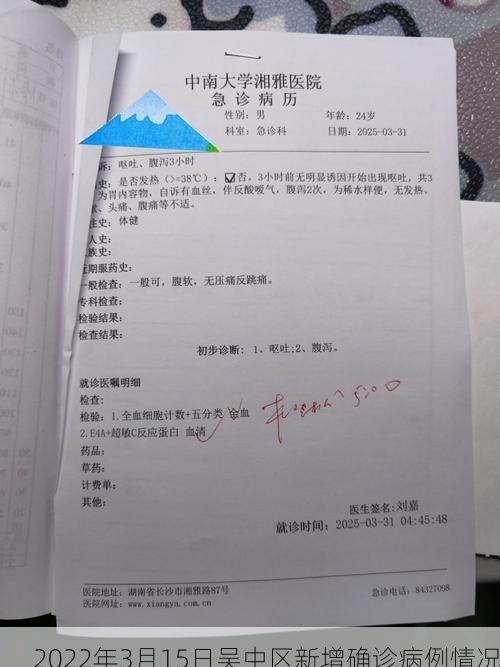 中南大学湘雅医院
急诊病历
性别：男 年龄：24岁
科室：急诊科 日期：2025-03-31
诉：呕吐、腹泻3小时
史：是否发热（>=38℃）：☑否。3小时前无明显诱因开始出现呕吐，共3
为胃内容物，自诉有血丝，伴反酸嗳气，腹泻2次，为稀水样便，无发热、
、头痛、腹痛等不适。
往史：体健
人史：
族史：
近期服药史：
一般检查：一般可，腹软，无压痛反跳痛。
专科检查：
检验结果：
检查结果：
初步诊断：1、呕吐;2、腹泻。
就诊医嘱明细
检查：
检验：1.全血细胞计数+五分类 全血
2.E4A+超敏C反应蛋白 血清
药品：
草药：
计费单：
其他：
医生签名:刘嘉
就诊时间：2025-03-31 04:45:48
医院地址：湖南省长沙市湘雅路87号 急诊电话：84327098
医院网址：www.xiangya.com.cn
2022年3月15日吴中区新增确诊病例情况